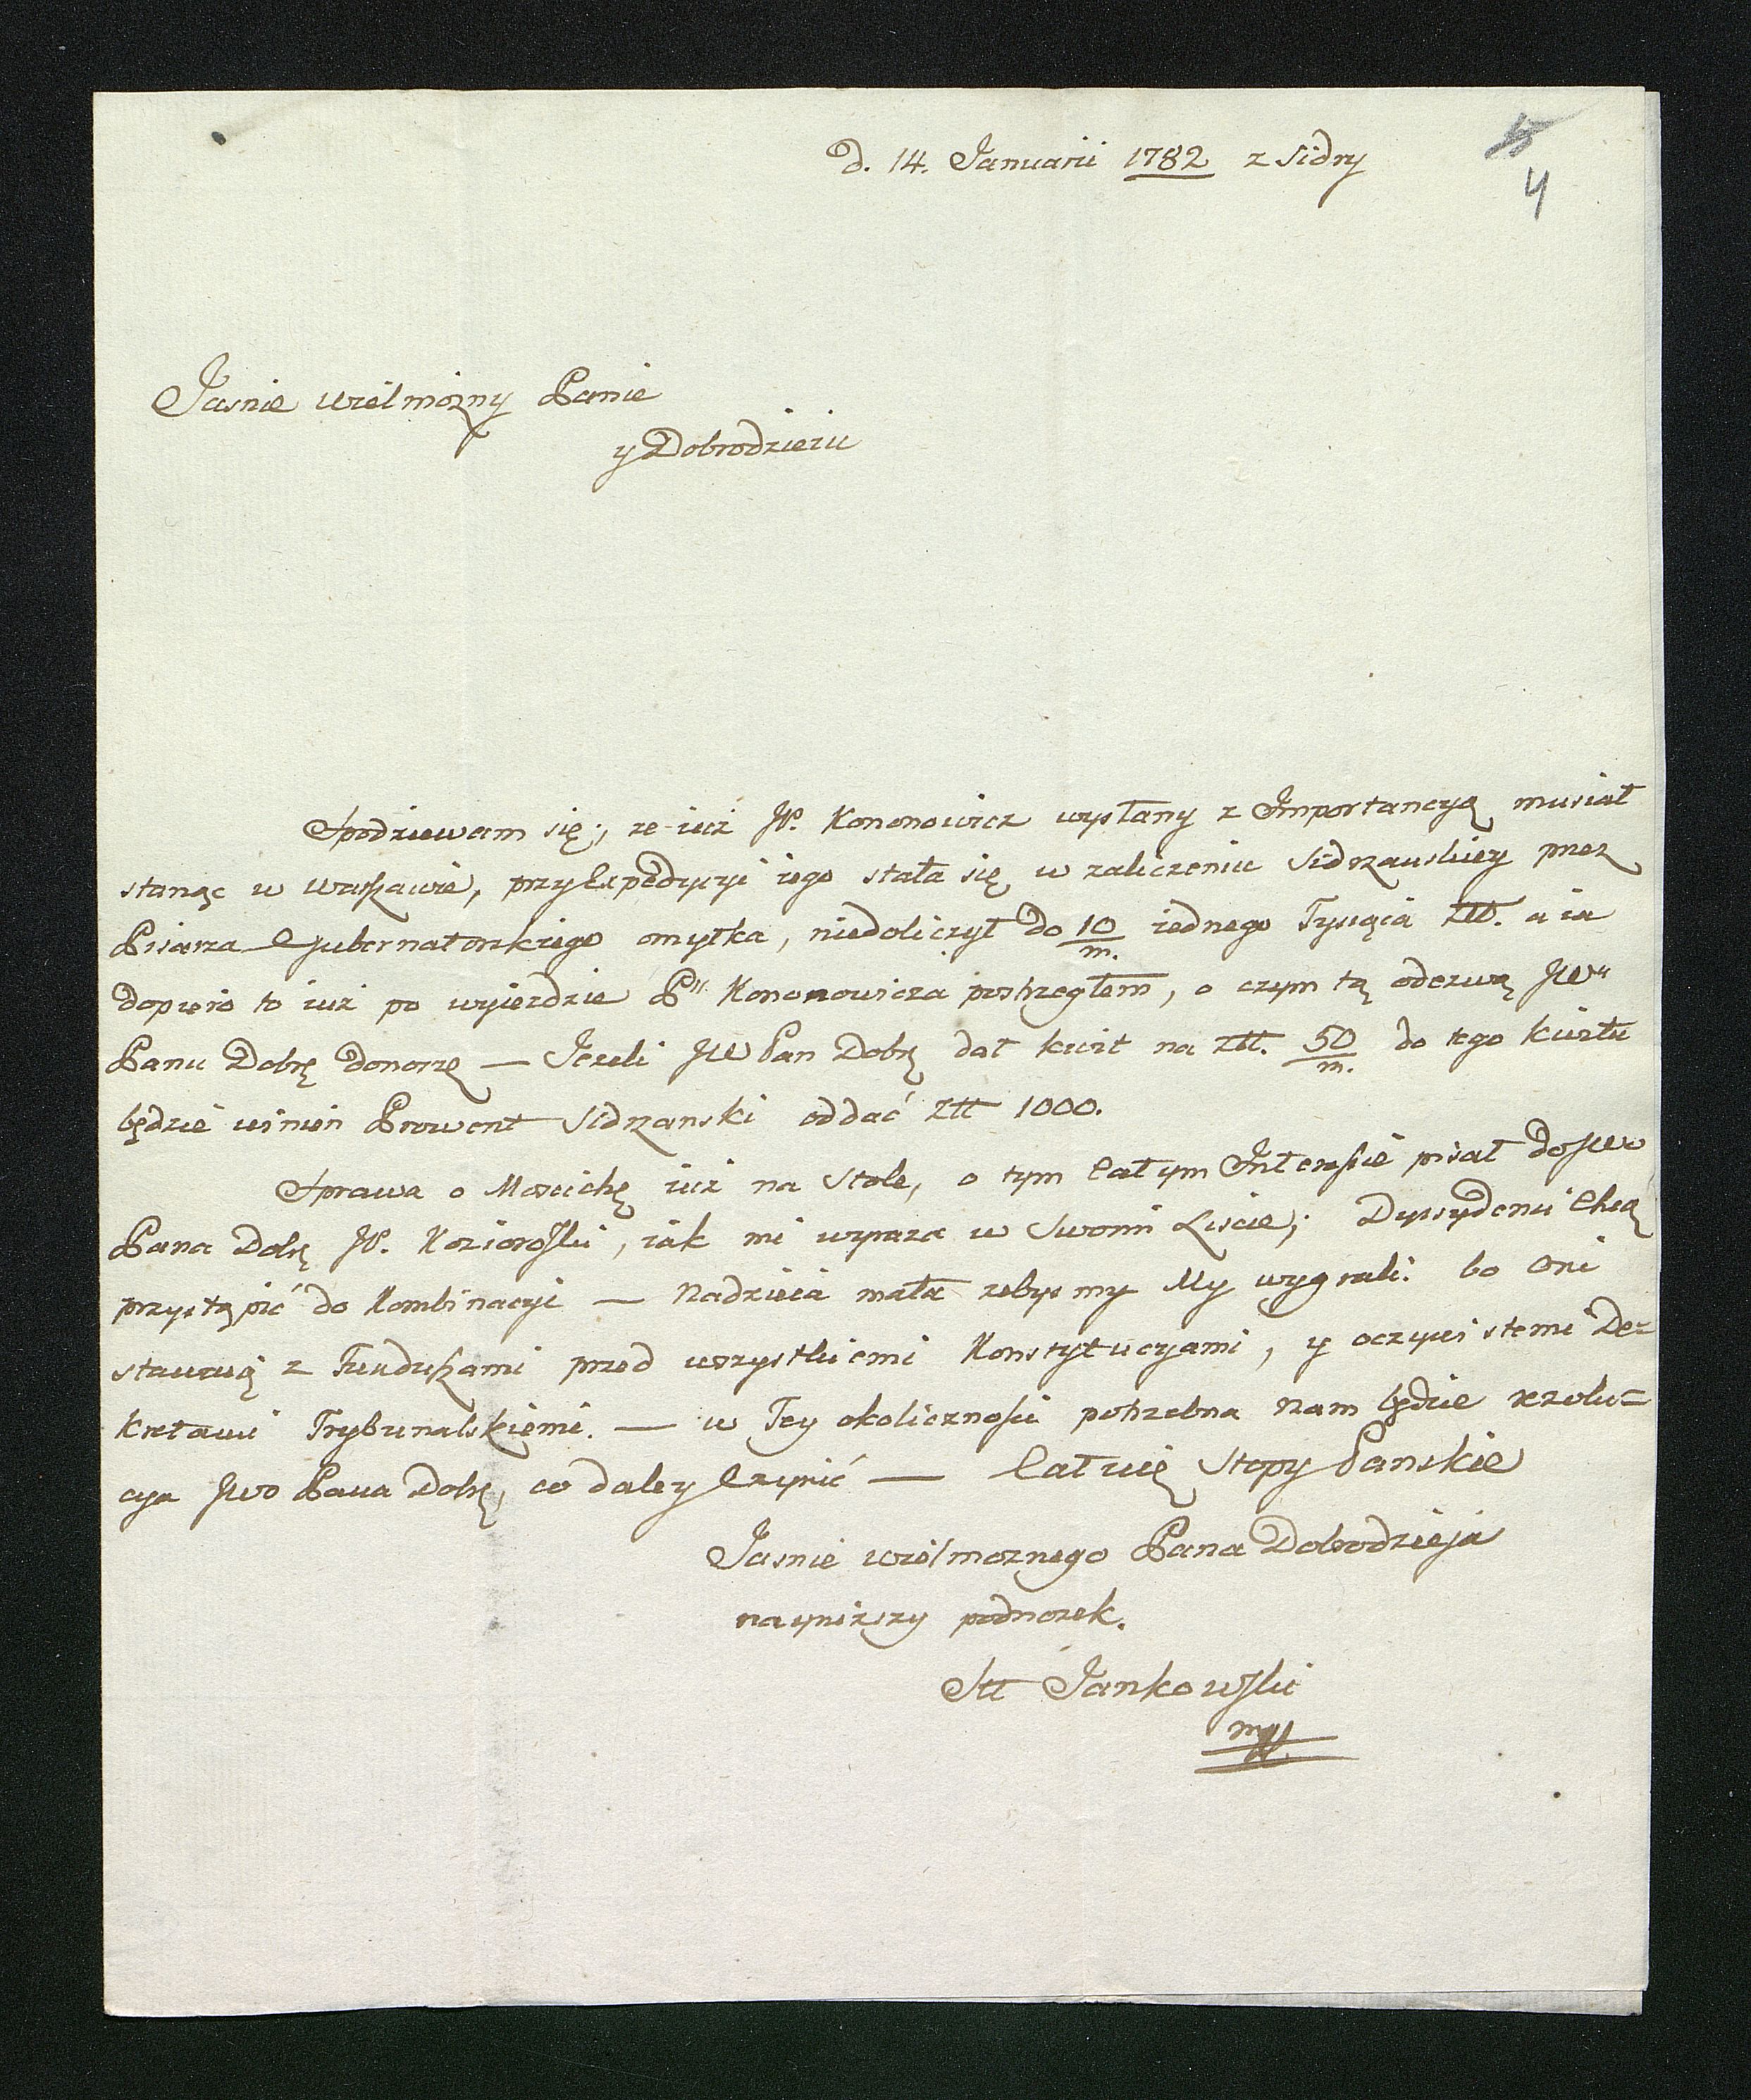 D. 14. Januarii 1782 z Sidry
4
Jasnie wielmozny Panie
y Dobrodzieiu
Spodziewam się, ze iuż JP. Kononowicz wysłany z Importancyą musiał
stanąc w warszawie, przy Expedycyi iego stała się w zaliczeniu Sidrzanskiey przez
Pisarza Gubernatorskiego omyłka, niedoliczył do 10/m. iednego Tysiąca Złł. a ia
dopiero to iuż po wyiezdzie Pa Kononowicza postrzegłem, o czym tą odezwą JW
Panu Dobrę donoszę — Jezeli JW Pan Dobrę dał kwit na Złł. 50/m. do tego kwitu
będzie winień Prowent Sidrzanski oddać Złł 1000.
Sprawa o Moscichę iuż na Stole, o tym Całym Interessie pisał do JWo
Pana Dobrę JP. Koziorowski, iak mi wyraza w Swoim Liscie; Dyssydenci Chcą
przystąpić do Kombinacyi — Nadzieia mała zebysmy My wygrali. bo Oni
stawaią z Funduszami przed wszystkiemi Konstytucyami, y oczywistemi De=
kretami Trybunalskiemi. — w Tey okolicznosci potrzebna nam będzie rezolu=
cya JWo Pana Dobrę, co daley Czynić — Całuię Stopy Panskie
Jasnie wielmoznego Pana Dobrodzieja
nayniższy podnozek.
Stt Jankowski
mpp